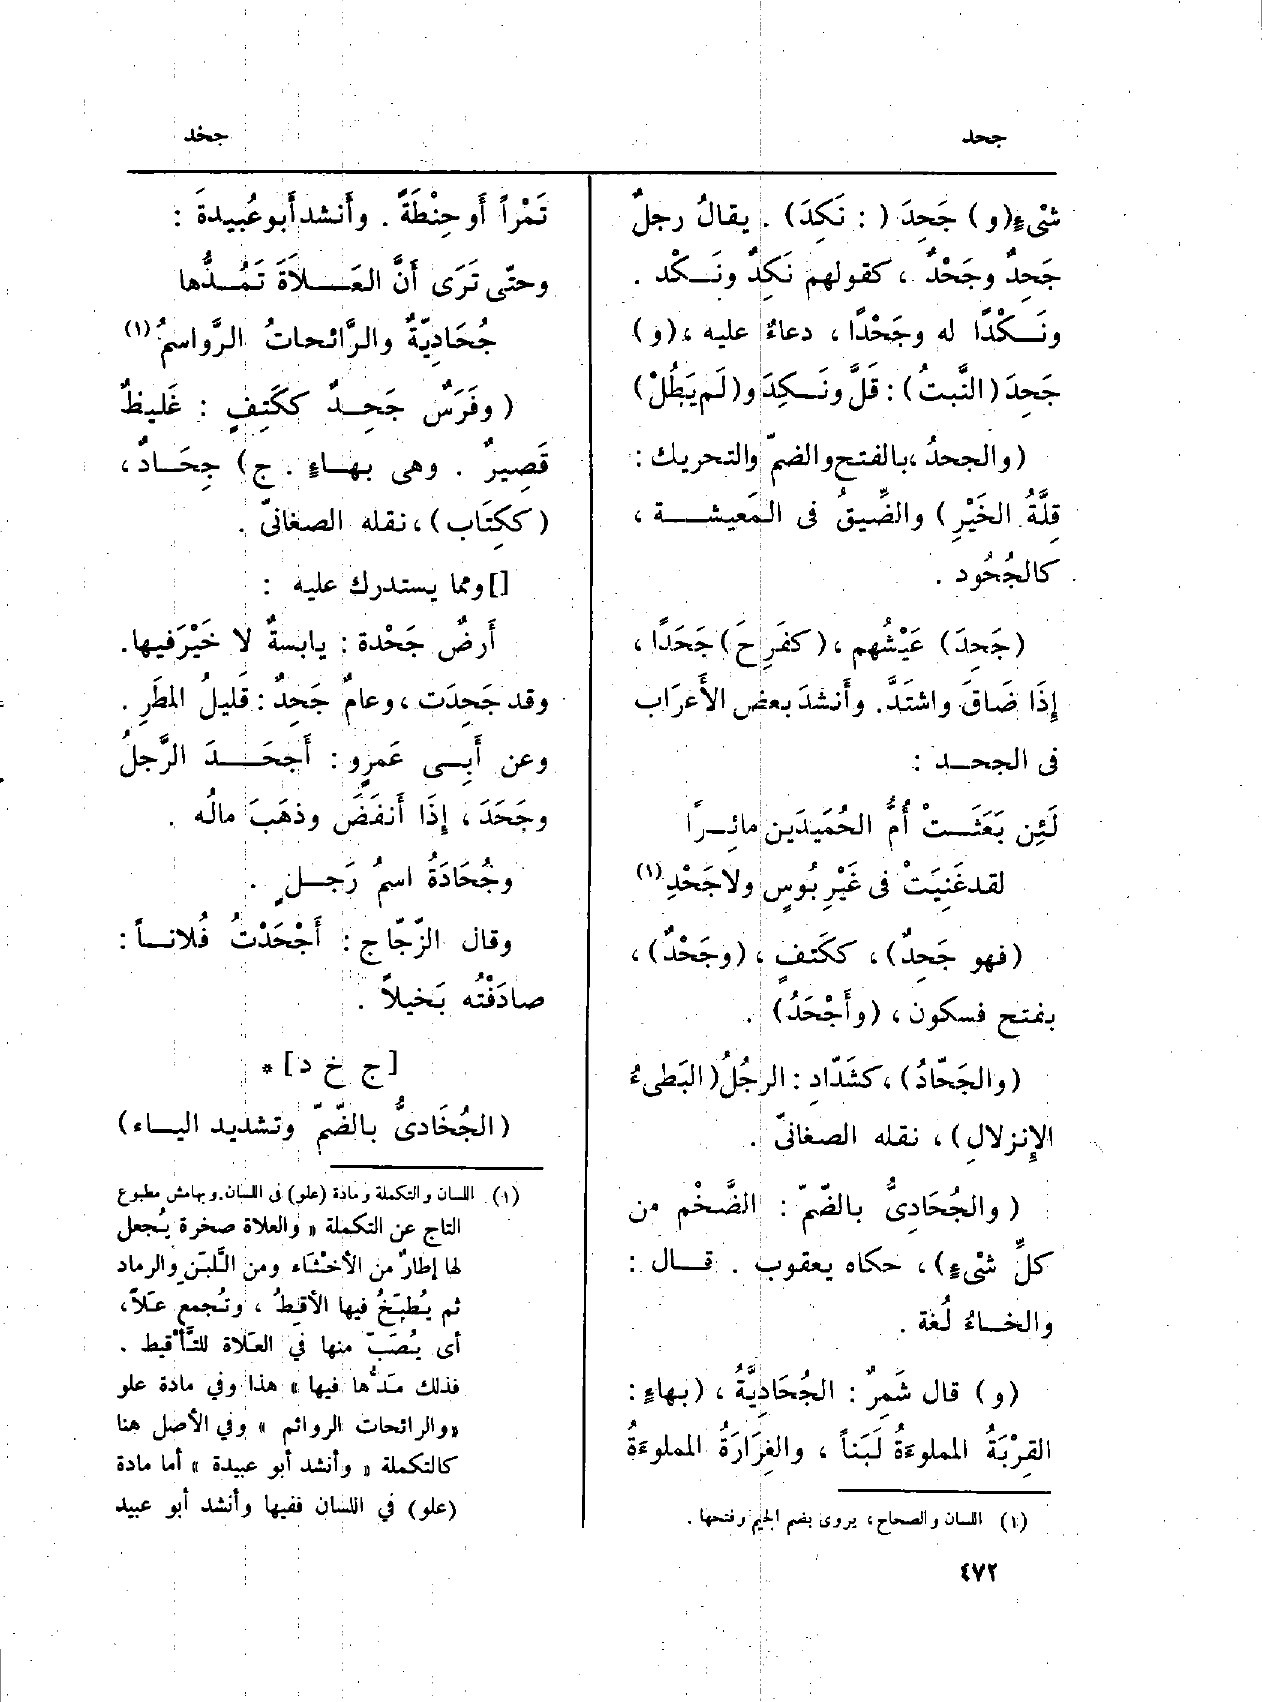 جحد
جخد
شىْءٍ (و) جَحِدَ ( : نَكِدَ) . يقالُ رجلٌ
جَحِدٌ وجَحْدٌ ، كقولهم نَكِدٌ ونَكْد .
ونَكْدًا له وجَحْدًا ، دعاءٌ عليه ، (و)
جَحِدَ (النَّبتُ) : قَلَّ ونَكِدَ و(لَم يَطُلْ)
(والجحدُ ، بالفتح والضمّ والتحريك :
قِلَّةُ الخَيْرِ) والضِّيقُ فى المَعيشة ،
كالجُحُود .
(جَحِدَ) عَيْشُهم ، (كفَرِحَ) جَحَدًا ،
إِذَا ضَاقَ واشتَدَّ. وأَنشدَ بعض الأَعرَاب
فى الجحد :
لَئِن بَعَثَتْ أُمُّ الحُمَيدَين مائِراً
لقد غَنِيَتْ فى غَيْرِ بُوسٍ ولا جَحْدِ (١)
(فهو جَحِدٌ)، ككَتفٍ ، (وجَحْدٌ)،
بفتح فسكون ، (وأَجْحَدُ) .
(والجَحّادُ)، كشَدّادٍ : الرجُلُ (البَطىءُ
الإِنزلالِ) ، نقله الصغانىّ .
( والجُحَادِىُّ بالضّمّ : الضَّخْم من
كلِّ شىْءٍ) ، حكاه يعقوب . قال :
والخاءُ لُغة .
(و) قال شَمِرٌ : الجُحَادِيَّةُ ، (بهاءٍ :
القِرْبَةُ المملوءَةُ لَبَناً ، والغِرَارَةُ المملوءَةُ
(١) اللسان والصحاح، يروى بضم الجيم وفتحها .
تَمْراً أَو حِنْطَةً . وأَنشد أَبو عُبيدة :
وحتّى تَرَى أَنَّ العَلاَةَ تَمُدُّها
جُحَادِيّةٌ والرَّائحاتُ الرَّواسمُ (١)
( وفَرَسٌ جَحِدٌ ككَتِفٍ : غَليظٌ
قَصِيرٌ . وهى بهاءٍ . ج) جِحَادٌ ،
(ككِتَاب) ، نقله الصغانىّ .
[] ومما يستدرك عليه :
أَرضٌ جَحْدة : يابسةٌ لا خَيْرَ فيها.
وقد جَحِدَت ، وعامٌ جَحِدٌ : قَليلُ المطَرِ .
وعن أَبِى عَمرٍو : أَجحَدَ الرَّجلُ
وجَحَدَ ، إِذَا أَنفَضَ وذهَبَ مالُه .
وجُحَادَةُ اسمُ رَجلٍ .
وقال الزّجّاج : أَجْحَدْتُ فُلاناً :
صادَفْتُه بَخيلاً .
[ج خ د] *
(الجُخَادىُّ بالضّمّ وتشديد الياء)
(١) اللسان والتكملة ومادة (علو) فى اللسان. وبهامش مطبوع
التاج عن التكملة « والعلاة صخرة يُجعل
لها إطارٌ من الأخثاء ومن اللَّبَن والرماد
ثم يُطبَخُ فيها الأقطُ ، وتُجمع عَلاً،
أى يُصَبّ منها في العلاة للتَّأْقيط .
فذلك مَدُّها فيها » هذا وفي مادة علو
«والرائحات الروائم » وفي الأصل هنا
كالتكملة « وأنشد أبو عبيدة » أما مادة
(علو) في اللسان ففيها وأنشد أبو عبيد
٤٧٢